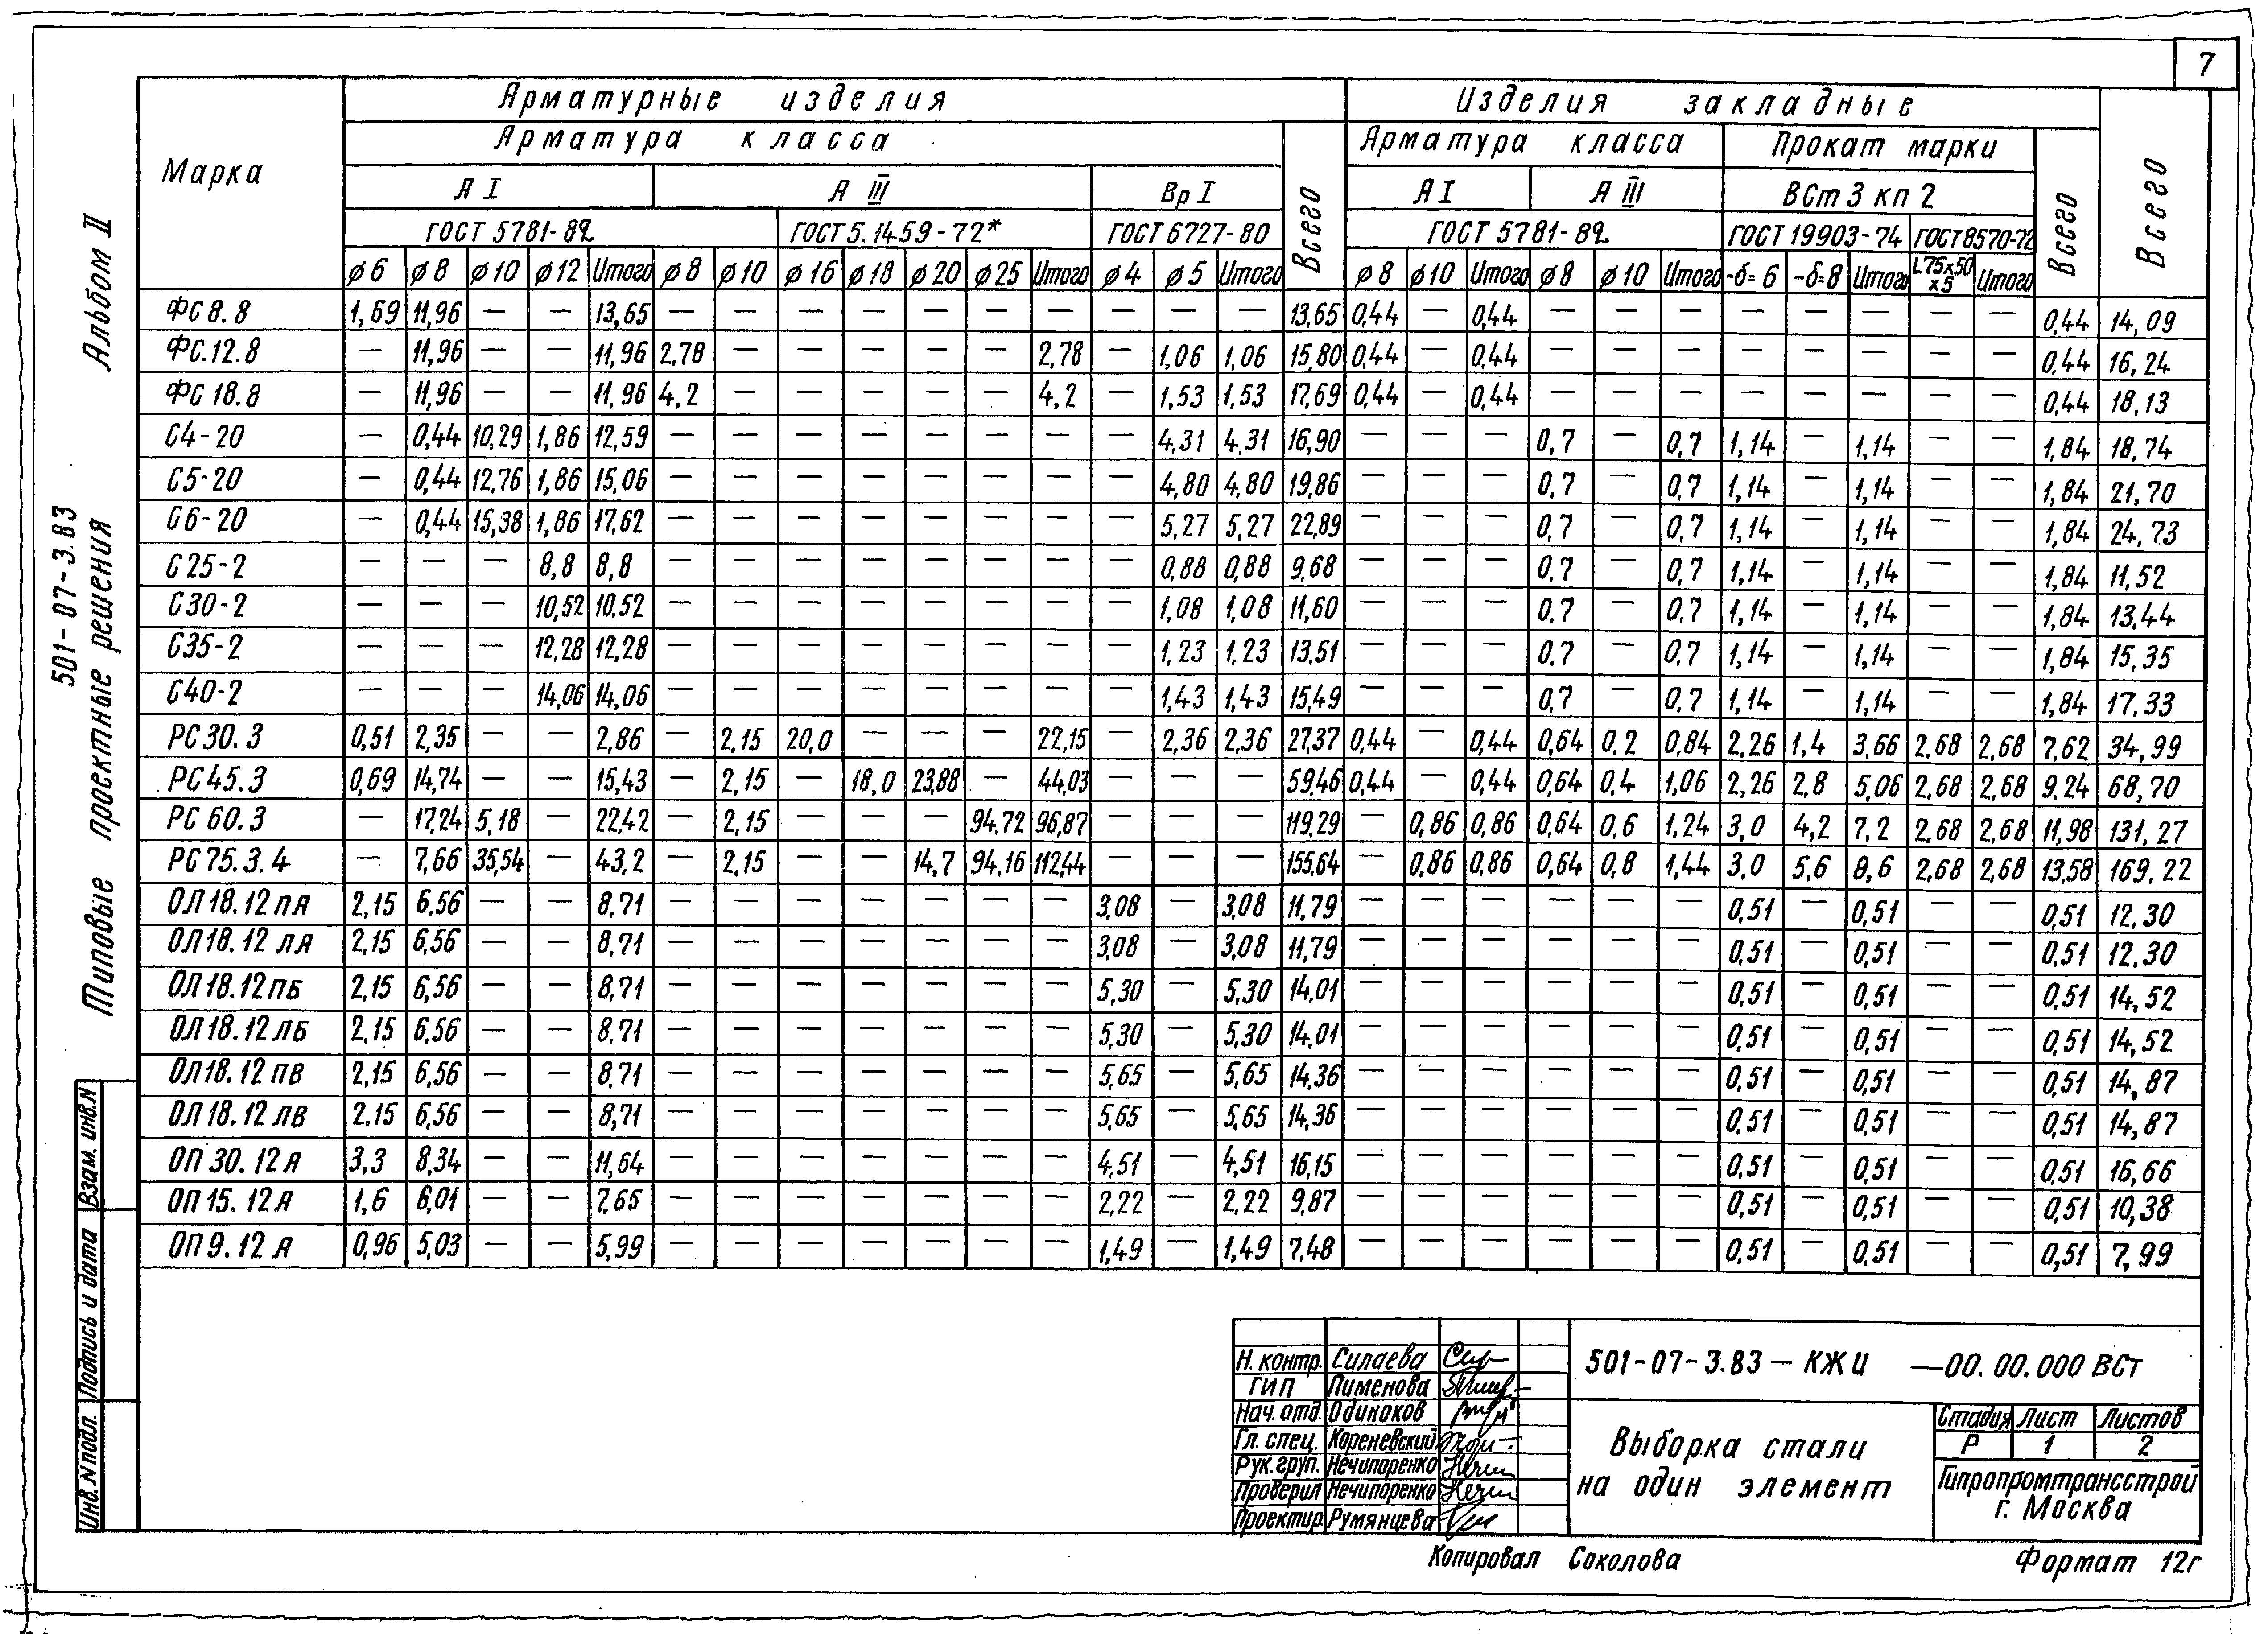 7
Альбом II
501-07-3.83
Типовые проектные решения
Взам. инв.N
Подпись и дата
Инв.N подл.
Марка
Арматурные изделия
Изделия закладные
Всего
Арматура класса
Всего
Арматура класса
Прокат марки
Всего
А I
А III
Вр I
А I
А III
ВСт 3 кп 2
ГОСТ 5781-82
ГОСТ 5.1459-72*
ГОСТ 6727-80
ГОСТ 5781-82
ГОСТ 19903-74
ГОСТ 8570-72
ø6 ø8 ø10 ø12 Итого ø8 ø10 ø16 ø18 ø20 ø25 Итого ø4 ø5 Итого ø8 ø10 Итого ø8 ø10 Итого -δ=6 -δ=8 Итого L75x50x5 Итого
ФС 8.8 1,69 11,96 — — 13,65 — — — — — — — — — — 13,65 0,44 — 0,44 — — — — — — — — 0,44 14,09
ФС.12.8 — 11,96 — — 11,96 2,78 — — — — — 2,78 — 1,06 1,06 15,80 0,44 — 0,44 — — — — — — — — 0,44 16,24
ФС 18.8 — 11,96 — — 11,96 4,2 — — — — — 4,2 — 1,53 1,53 17,69 0,44 — 0,44 — — — — — — — — 0,44 18,13
С4-20 — 0,44 10,29 1,86 12,59 — — — — — — — — 4,31 4,31 16,90 — — — 0,7 — 0,7 1,14 — 1,14 — — 1,84 18,74
С5-20 — 0,44 12,76 1,86 15,06 — — — — — — — — 4,80 4,80 19,86 — — — 0,7 — 0,7 1,14 — 1,14 — — 1,84 21,70
С6-20 — 0,44 15,38 1,86 17,62 — — — — — — — — 5,27 5,27 22,89 — — — 0,7 — 0,7 1,14 — 1,14 — — 1,84 24,73
С25-2 — — — 8,8 8,8 — — — — — — — — 0,88 0,88 9,68 — — — 0,7 — 0,7 1,14 — 1,14 — — 1,84 11,52
С30-2 — — — 10,52 10,52 — — — — — — — — 1,08 1,08 11,60 — — — 0,7 — 0,7 1,14 — 1,14 — — 1,84 13,44
С35-2 — — — 12,28 12,28 — — — — — — — — 1,23 1,23 13,51 — — — 0,7 — 0,7 1,14 — 1,14 — — 1,84 15,35
С40-2 — — — 14,06 14,06 — — — — — — — — 1,43 1,43 15,49 — — — 0,7 — 0,7 1,14 — 1,14 — — 1,84 17,33
РС 30.3 0,51 2,35 — — 2,86 — 2,15 20,0 — — — 22,15 — 2,36 2,36 27,37 0,44 — 0,44 0,64 0,2 0,84 2,26 1,4 3,66 2,68 2,68 7,62 34,99
РС 45.3 0,69 14,74 — — 15,43 — 2,15 — 18,0 23,88 — 44,03 — — — 59,46 0,44 — 0,44 0,64 0,4 1,06 2,26 2,8 5,06 2,68 2,68 9,24 68,70
РС 60.3 — 17,24 5,18 — 22,42 — 2,15 — — — 94,72 96,87 — — — 119,29 — 0,86 0,86 0,64 0,6 1,24 3,0 4,2 7,2 2,68 2,68 11,98 131,27
РС 75.3.4 — 7,66 35,54 — 43,2 — 2,15 — — 14,7 94,16 112,44 — — — 155,64 — 0,86 0,86 0,64 0,8 1,44 3,0 5,6 8,6 2,68 2,68 13,58 169,22
ОЛ 18.12 пА 2,15 6,56 — — 8,71 — — — — — — — 3,08 — 3,08 11,79 — — — — — — 0,51 — 0,51 — — 0,51 12,30
ОЛ 18.12 лА 2,15 6,56 — — 8,71 — — — — — — — 3,08 — 3,08 11,79 — — — — — — 0,51 — 0,51 — — 0,51 12,30
ОЛ 18.12 пБ 2,15 6,56 — — 8,71 — — — — — — — 5,30 — 5,30 14,01 — — — — — — 0,51 — 0,51 — — 0,51 14,52
ОЛ 18.12 лБ 2,15 6,56 — — 8,71 — — — — — — — 5,30 — 5,30 14,01 — — — — — — 0,51 — 0,51 — — 0,51 14,52
ОЛ 18.12 пВ 2,15 6,56 — — 8,71 — — — — — — — 5,65 — 5,65 14,36 — — — — — — 0,51 — 0,51 — — 0,51 14,87
ОЛ 18.12 лВ 2,15 6,56 — — 8,71 — — — — — — — 5,65 — 5,65 14,36 — — — — — — 0,51 — 0,51 — — 0,51 14,87
ОП 30.12 А 3,3 8,34 — — 11,64 — — — — — — — 4,51 — 4,51 16,15 — — — — — — 0,51 — 0,51 — — 0,51 16,66
ОП 15.12 А 1,6 6,01 — — 7,65 — — — — — — — 2,22 — 2,22 9,87 — — — — — — 0,51 — 0,51 — — 0,51 10,38
ОП 9.12 А 0,96 5,03 — — 5,99 — — — — — — — 1,49 — 1,49 7,48 — — — — — — 0,51 — 0,51 — — 0,51 7,99
Н. контр. Силаева
ГИП Пименова
Нач. отд. Одиноков
Гл. спец. Кореневский
Рук. груп. Нечипоренко
Проверил Нечипоренко
Проектир. Румянцева
501-07-3.83 — КЖИ —00.00.000 ВСт
Выборка стали
на один элемент
Стадия Лист Листов
Р 1 2
Гипропромтрансстрой
г. Москва
Копировал Соколова
Формат 12г